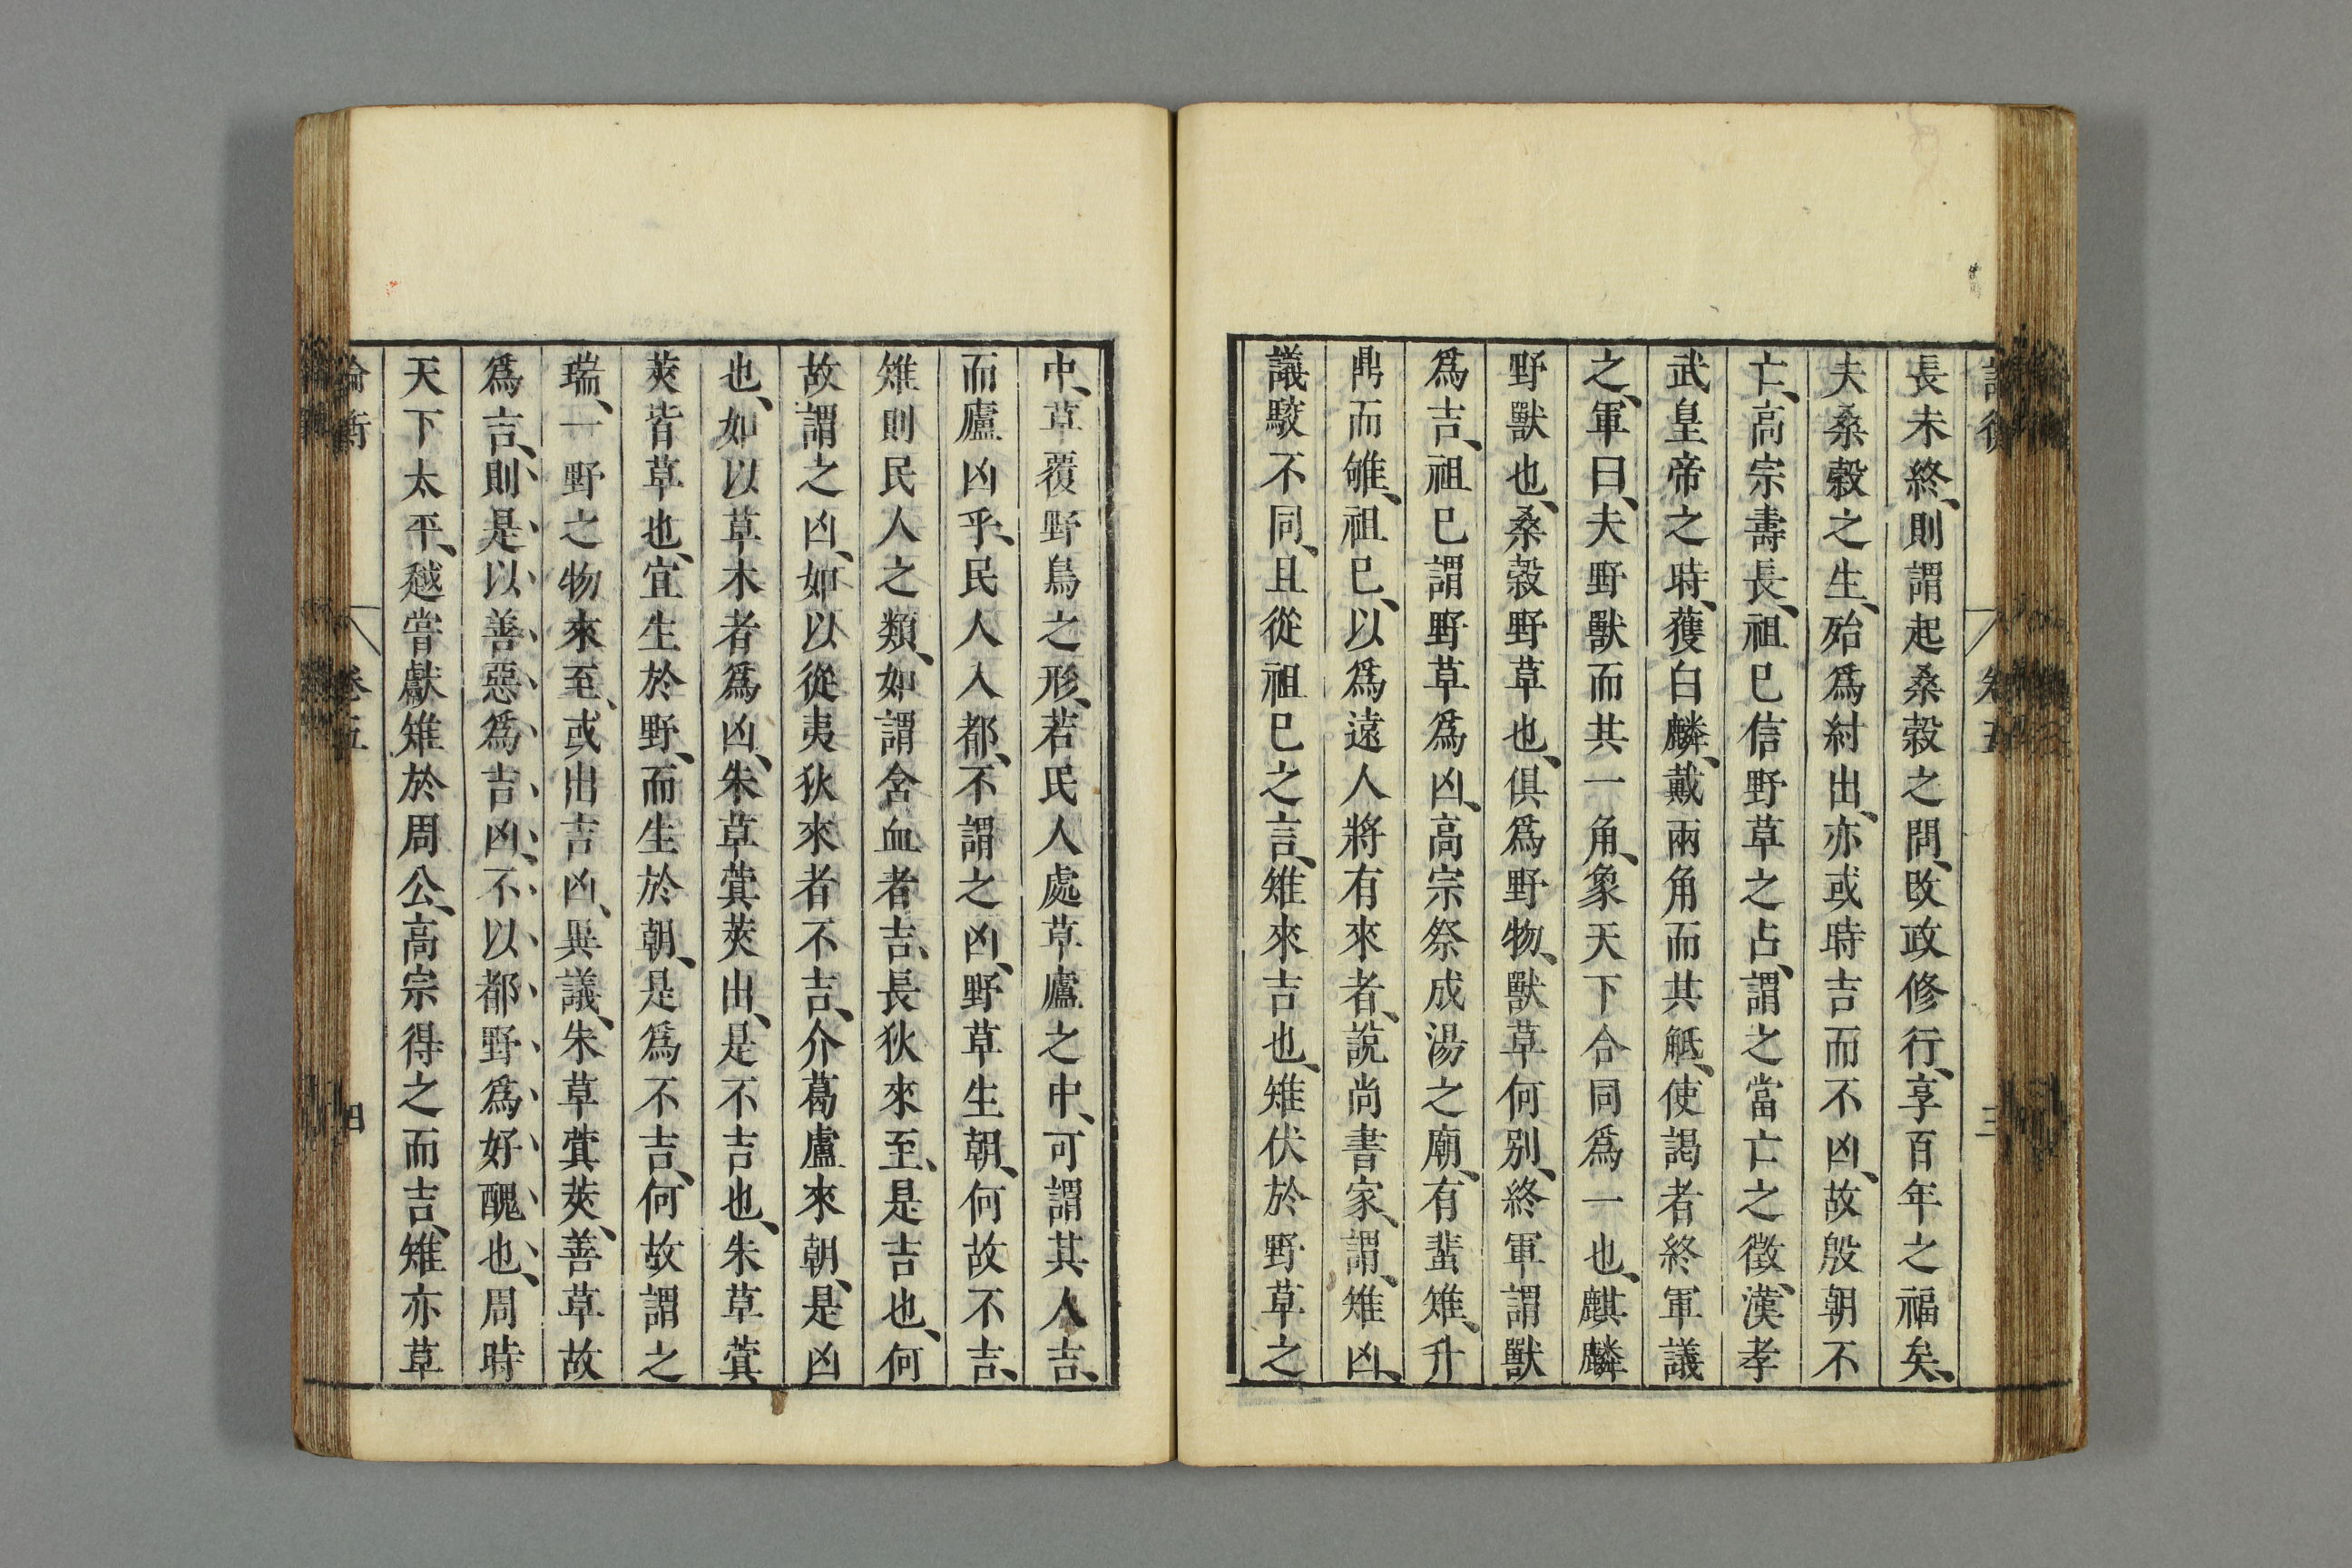 論衡 卷五 三
長未終、則謂起桑榖之問、改政修行、享百年之福矣、
夫桑榖之生、殆爲紂出、亦或時吉而不凶、故殷朝不
亡、高宗壽長、祖已信野草之占、謂之當亡之徵、漢孝
武皇帝之時、獲白麟、戴兩角而共觝、使謁者終軍議
之、軍曰、夫野獸而共一角、象天下合同爲一也、麒麟
野獸也、桑榖野草也、俱爲野物、獸草何别、終軍謂獸
爲吉、祖已謂野草爲凶、高宗祭成湯之廟、有蜚雉、升
鼎而雊、祖已、以爲遠人將有來者、說尚書家、謂、雉凶、
議駮不同、且從祖已之言、雉來吉也、雉伏於野草之
中、草覆野鳥之形、若民人處草廬之中、可謂其人吉、
而廬凶乎、民人入都、不謂之凶、野草生朝、何故不吉、
雉則民人之類、如謂含血者吉、長狄來至、是吉也、何
故謂之凶、如以從夷狄來者不吉、介葛盧來朝、是凶
也、如以草木者爲凶、朱草蓂莢出、是不吉也、朱草蓂
莢皆草也、宜生於野、而生於朝、是爲不吉、何故謂之
瑞、一野之物來至、或出吉凶、異議、朱草蓂莢、善草故
爲吉、則是以善惡爲吉凶、不以都野爲好醜也、周時
天下太平、越甞獻雉於周公、高宗得之而吉、雉亦草
論衡 卷五 四